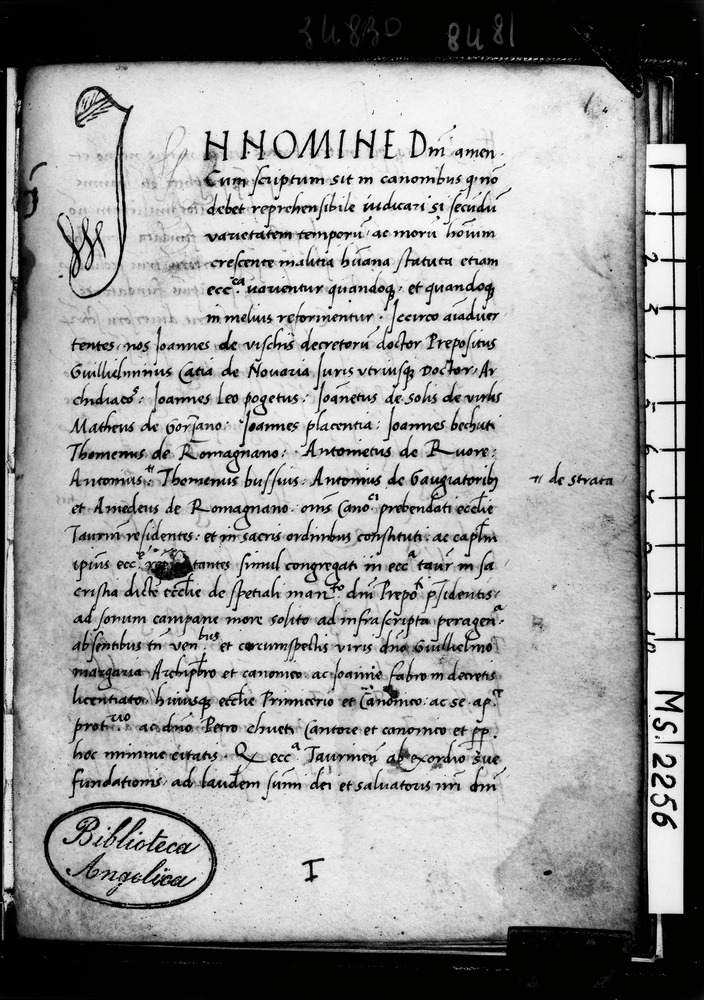 34830 8481
IN NOMINE Dnī amen.
Cum scriptum sit in canonibus q̄ nō
debet reprehensibile iudicari si secūdū
varietatem temporū ac morū hoīum
crescente malitia hūana statuta etiam
ecc.ca uarientur quandoq; et quandoq;
in melius reformentur. Iccirco aīaduer
tentes nos Joannes de vischis decretorū doctor Prepositus
Guillielminus Catia de Novaria Juris vtriusq; Doctor, Ar
chidiaco⁹: Joannes Leo pogetus: Joānetus de solis de virlis
Matheus de Gorzano: Joannes placentia: Joannes bechuti
Thomenus de Romagnano: Antonietus de Ruore:
Antonius " Thomenus bussius: Antonius de Gaugiatorib; " de strata
et Amedeus de Romagnano. om̄s Cano.ci prebendati eccl̄ie
Taurin̄ residentes: et in sacris ordinibus constituti: ac capl̄m
ipius ecc.e tantes simul congregati in ecc.a taur̄ in sa
cristia dicte eccl̄ie de spetiali man.to dn̄i Prepo.ti p̄sidentis.
ad sonum campane more solito ad infrascripta peragen.a
absentibus tn̄ ven.bus et circumspectis viris dn̄o Guillielmo
margaria Archipb̄ro et canonico. ac Joanne fabro in decretis
licentiato, huiusq; eccl̄ie Primicerio et Canonico: ac se. ap.ca
prot.rio ac dn̄o Petro chueti Cantore et canonico et pp.
hoc minime citatis. Q ecc.a Taurineñ ab exordio sue
fundationis, ad laudem sum̄i dei et saluatoris nr̄i dn̄i
I
Biblioteca
Angelica
1 2 3 5 6 7 10
MS. 2256